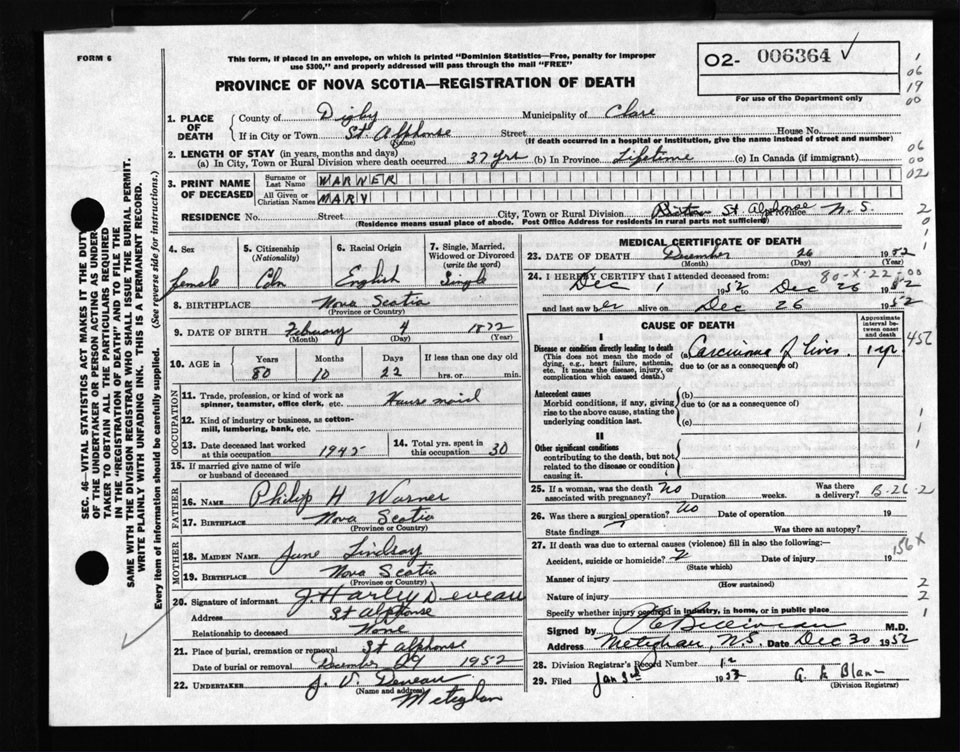 FORM 6
This form, if placed in an envelope, on which is printed "Dominion Statistics—Free, penalty for improper
use $300," and properly addressed will pass through the mail "FREE"
PROVINCE OF NOVA SCOTIA—REGISTRATION OF DEATH
O2- 006364 ✓
For use of the Department only
1. PLACE OF DEATH
County of Digby Municipality of Clare
If in City or Town St. Alphonse Street House No.
(Name) (If death occurred in a hospital or institution, give the name instead of street and number)
2. LENGTH OF STAY (in years, months and days)
(a) In City, Town or Rural Division where death occurred 37 yrs (b) In Province Lifetime (c) In Canada (if immigrant)
3. PRINT NAME OF DECEASED
Surname or Last Name WARNER
All Given or Christian Names MARY
RESIDENCE No. Street City, Town or Rural Division St Alphonse Province N. S.
(Residence means usual place of abode. Post Office Address for Residents in rural parts not sufficient)
4. Sex
female
5. Citizenship (Nationality)
Cdn
6. Racial Origin
English
7. Single, Married, Widowed or Divorced (write the word)
Single
8. BIRTHPLACE Nova Scotia
(Province or Country)
9. DATE OF BIRTH February 4 1872
(Month) (Day) (Year)
10. AGE in Years Months Days If less than one day old
80 10 22 hrs. or min.
OCCUPATION
11. Trade, profession, or kind of work as
spinner, teamster, office clerk, etc. House maid
12. Kind of industry or business, as cotton-
mill, lumbering, bank, etc.
13. Date deceased last worked
at this occupation 1942
14. Total yrs. spent in
this occupation 30
15. If married give name of wife
or husband of deceased
FATHER
16. NAME Philip H Warner
17. BIRTHPLACE Nova Scotia
(Province or Country)
MOTHER
18. MAIDEN NAME Jane Lindsay
19. BIRTHPLACE Nova Scotia
(Province or Country)
20. Signature of informant J. Harley Deveau
Address St Alphonse
Relationship to deceased None
21. Place of burial, cremation or removal St Alphonse
Date of burial or removal December 29 1952
22. UNDERTAKER J. V. Deveau
(Name and address)
Meteghan
MEDICAL CERTIFICATE OF DEATH
23. DATE OF DEATH December 26 1952
(Month) (Day) (Year)
80-X-22-00
24. I HEREBY CERTIFY that I attended deceased from:
Dec 1 1952 to Dec 26 1952
and last saw her alive on Dec 26 1952
CAUSE OF DEATH
Approximate interval between onset and death
I
Disease or condition directly leading to death
(This does not mean the mode of
dying, e.g., heart failure, asthenia,
etc. It means the disease, injury, or
complication which caused death.)
(a) Carcinoma of liver. 1 yr
due to (or as a consequence of)
Antecedent causes
Morbid conditions, if any, giving
rise to the above cause, stating the
underlying condition last.
(b)
due to (or as a consequence of)
(c)
II
Other significant conditions
contributing to the death, but not
related to the disease or condition
causing it.
25. If a woman, was the death
associated with pregnancy? No Duration weeks. Was there a delivery?
B-26-2
26. Was there surgical operation? No Date of operation 19
State findings Was there an autopsy?
27. If death was due to external causes (violence) fill in also the following:—
156X
Accident, suicide or homicide? Date of injury 19
(State which)
Manner of injury
(How sustained)
Nature of injury
Specify whether injury occured in industry, in home, or in public place
Signed by M.D.
Address Meteghan, N.S. Date Dec 30 1952
28. Division Registrar's Record Number 12
29. Filed Jan 3rd 1953
(Division Registrar)
SEC. 46—VITAL STATISTICS ACT MAKES IT THE DUTY
OF THE UNDERTAKER OR PERSON ACTING AS UNDER-
TAKER TO OBTAIN ALL THE PARTICULARS REQUIRED
IN THE "REGISTRATION OF DEATH" AND TO FILE THE
SAME WITH THE DIVISION REGISTRAR WHO SHALL ISSUE THE BURIAL PERMIT.
WRITE PLAINLY WITH UNFADING INK. THIS IS A PERMANENT RECORD.
Every item of information should be carefully supplied. (See reverse side for instructions.)
1
06
19
00
06
00
02
2
0
1
1
456
1
1
1
2
2
1